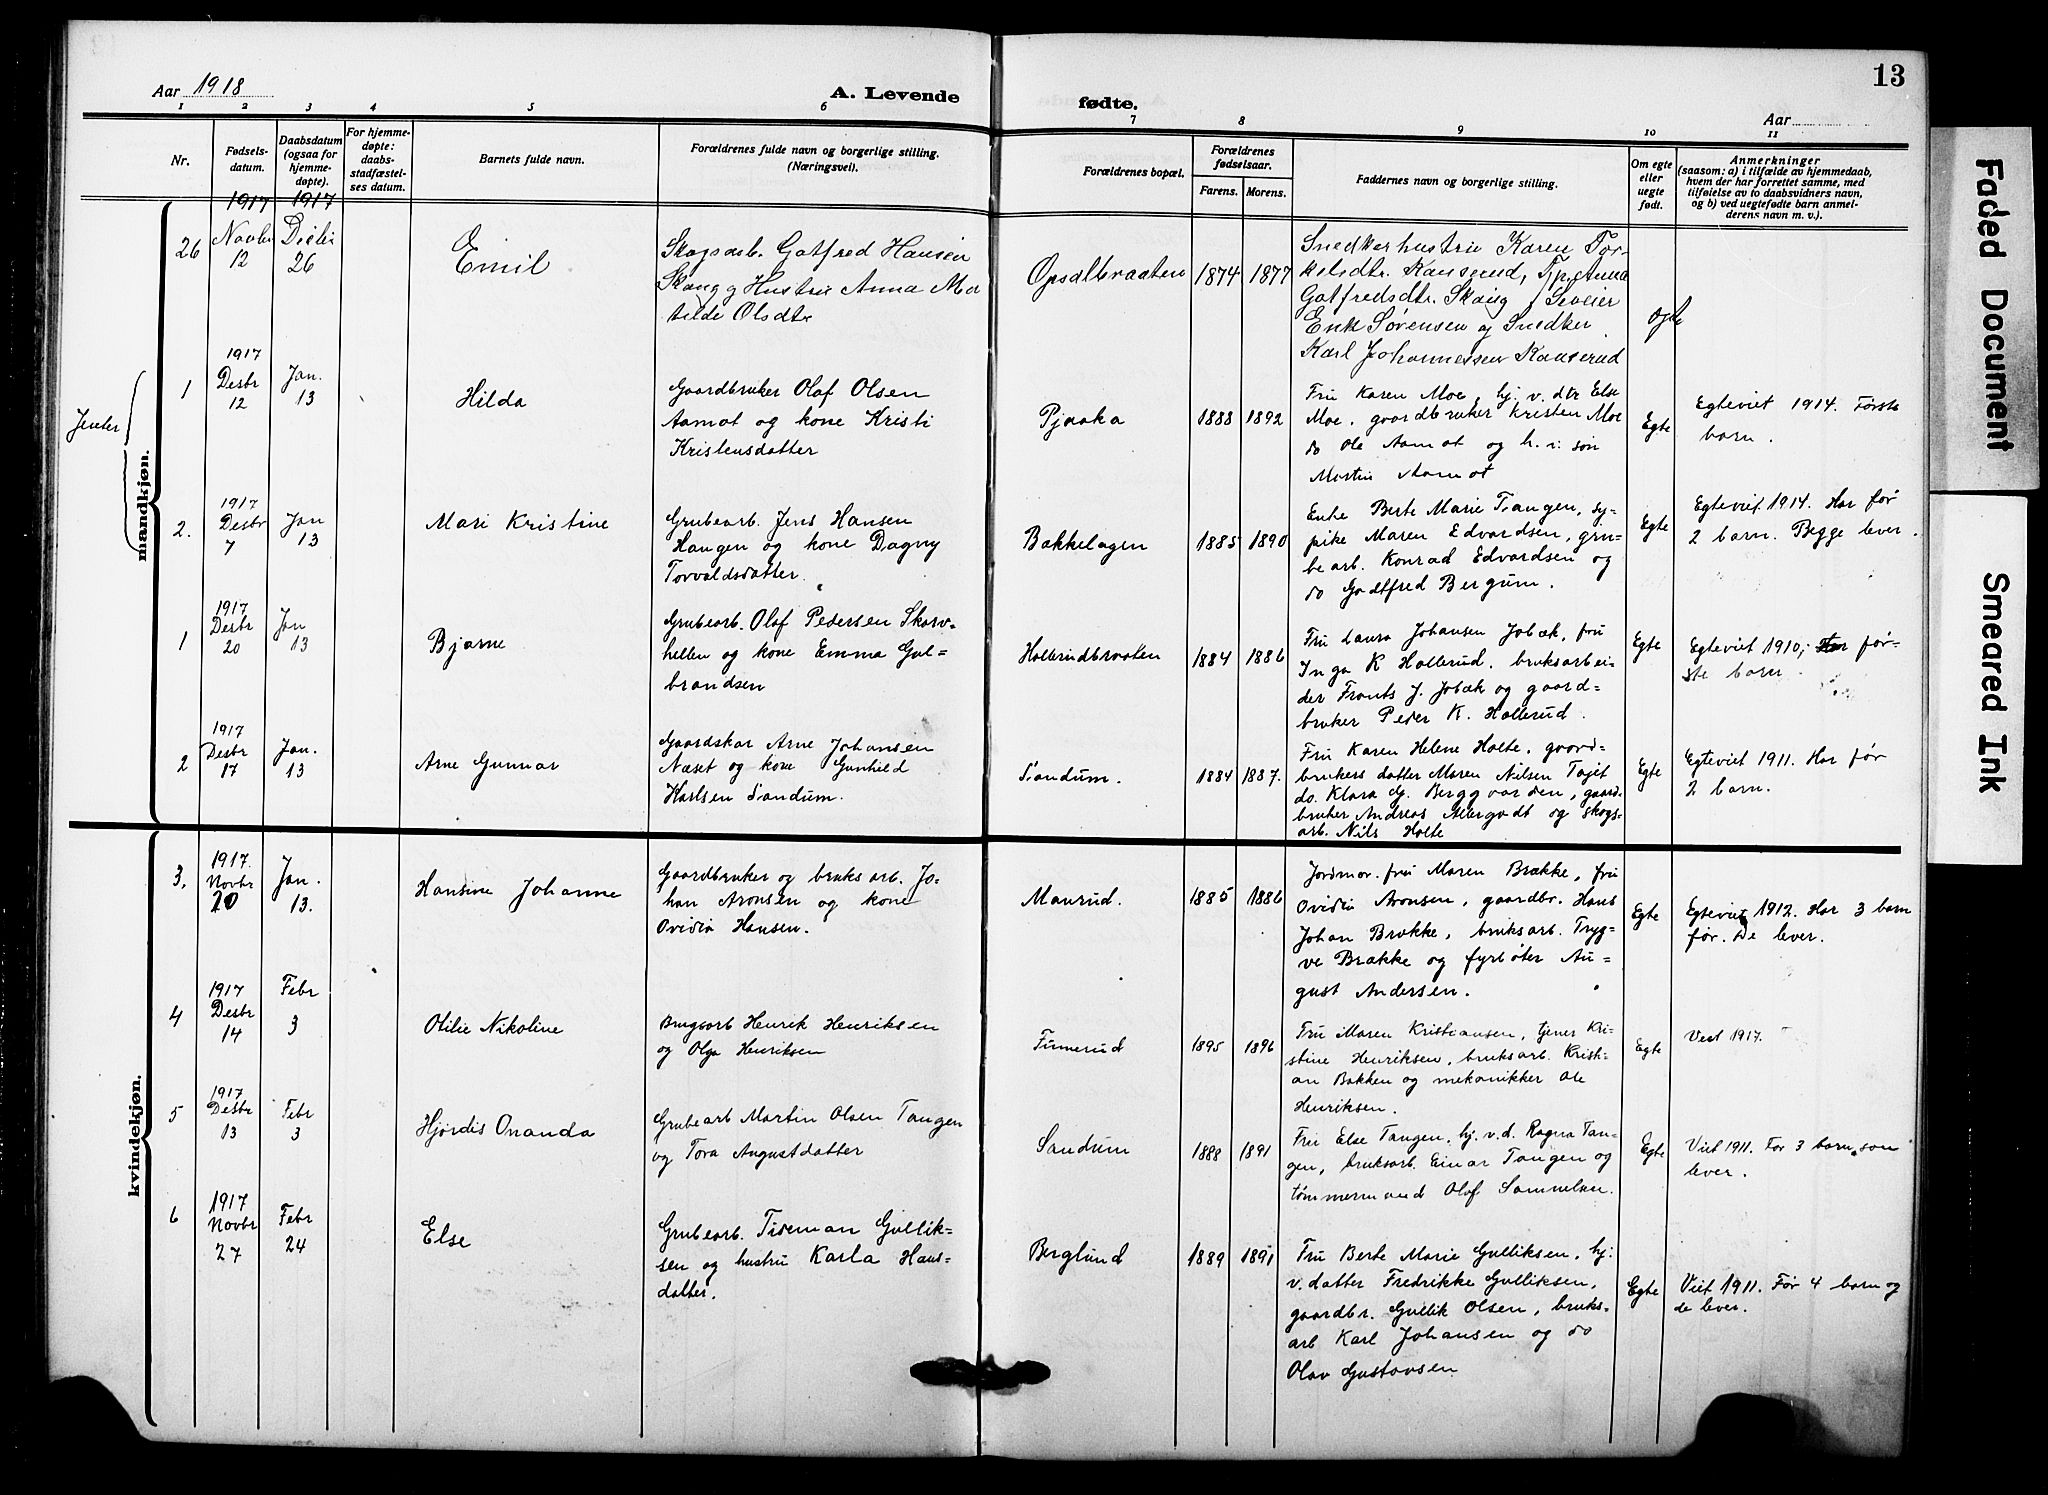 13
Aar 1918
A. Levende
fødte.
Aar
1 2 3 4 5 6 7 8 9 10 11
Nr.
Fødsels-
datum.
Daabsdatum
(ogsaa for
hjemme-
døpte).
For hjemme-
døpte:
daabs-
stadfæstel-
ses datum.
Barnets fulde navn.
Forældrenes fulde navn og borgerlige stilling.
(Næringsvei).
Forældrenes bopæl.
Forældrenes
fødselsaar.
Farens. Morens.
Faddernes navn og borgerlige stilling.
Om egte
eller
uegte
født.
Anmerkninger
(saasom: a) i tilfælde av hjemmedaab,
hvem der har forrettet samme, med
tilføielse av to daabsvidners navn,
og b) ved uegtefødte barn anmel-
derens navn m. v.).
mandkjøn.
Jenter
26
1917
Novbr
12
1917
Desbr
26
Emil
Skogsarb. Gotfred Hansen
Skaug og Hustru Anna Ma
tilde Olsdtr
Opsalbraaten
1874 1877
Snedkerhustru Karen Tor-
kelsdtr. Kanserud, Tp. Anna
Gotfredsdtr. Skaug,
Erik Sørensen og Snedker
Karl Johannessen Kanserud
egte
1
1917
Desbr
12
Jan.
13
Hilda
Gaardbruker Olaf Olsen
Aamot og kone Kristi
Kristensdatter
Pjaaka
1888 1892
Fru Karen Moe, hj. v. dtr Else
Moe, gaardbruker Kristen Moe
do Ole Aamot og h. s: søn
Martin Aamot
Egte
Egteviet 1914. Første
barn.
2.
1917
Desbr
7
Jan
13
Mari Kristine
Grubearb. Jens Hansen
Haugen og kone Dagny
Torvaldsdatter.
Bakkelagen
1885 1890
Enke Berte Marie Tangen, sy-
pike Maren Edvardsen, gru-
bearb. Konrad Edvardsen og
do Godtfred Bergum.
Egte
Egteviet 1914. Har før
2 barn. Begge lever.
1
1917
Desbr
20
Jan
13
Bjarne
Grubearb. Olaf Pedersen Skarv-
hellen og kone Emma Gul-
brandsen
Hollerudbraaten
1884 1886
Fru Laura Johansen Jobæk, fru
Inga K Hollerud. bruksarbei-
der Frants J. Jobæk og gaard-
bruker Peder K. Hollerud.
Egte
Egteviet 1910; Har før-
ste barn.
2
1917
Desbr
17
Jan.
13
Arne Gunnar
Gaardskar Arne Johansen
Næset og kone Gunhild
Karlsen Sandum.
Sandum.
1884 1887.
Fru Karen Helene Holte, gaard-
brukers datter Maren Nilsen Tajet
do. Klara Bergg varden, gaard-
bruker Andreas og skogs-
arb. Nils Holte
Egte
Egteviet 1911. Har før
2 barn.
kvindekjøn.
3.
1917.
Novbr
20
Jan.
13.
Hansine Johanne
Gaardbruker og bruksarb. Jo-
han Aronsen og kone
Ovidia Hansen.
Maurud.
1885 1886
Jordmor. fru Maren Brække, fru
Ovidia Aronsen, gaardbr. Hans
Johan Brække, bruksarb. Tryg-
ve Brække og fyrbøter Au-
gust Andersen.
Egte
Egteviet 1912. Har 3 barn
før. De lever.
4
1917
Desbr
14
Febr
3
Otilie Nikoline
Brugsarb Henrik Henriksen
og Olga Henriksen
Finnerud
1895 1896
Fru Maren Kristiansen, tjener Kri-
stine Henriksen, bruksarb. Kristi-
an Bakken og mekanikker Ole
Henriksen.
Egte
Viet 1917.
5
1917
Desbr
13
Febr
3
Hjørdis Onanda
Grubearb Martin Olsen Tangen
og Tora Augustdatter
Sandum
1888 1891
Fru Else Tangen, hj. v. d. Ragna Tan-
gen, bruksarb. Einar Tangen og
tømmermand Olaf Samuelsen.
Egte
Viet 1911. Før 3 barn, som
lever.
6
1917
Novbr
27
Febr
24
Else
Grubearb. Tideman Gulliksen
sen og hustru Karla Hans-
datter.
Berglund
1889 1891
Fru Berte Marie Gulliksen, hj:
v. datter Fredrikke Gulliksen,
gaardbr. Gullik Olsen, bruks-
arb Karl Johansen og do
Olav Gustavsen
Egte
Viet 1911. Før 4 barn og
de lever.
Faded Document
Smeared Ink